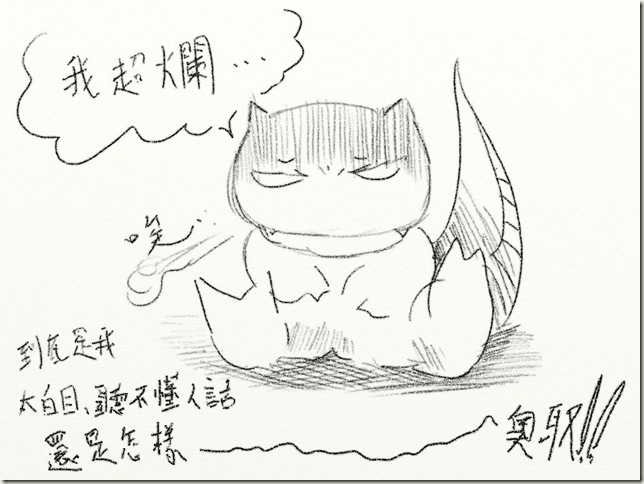 我超爛...
唉...
到底是我
太白目、聽不懂人話
還是怎樣
奧耶!!